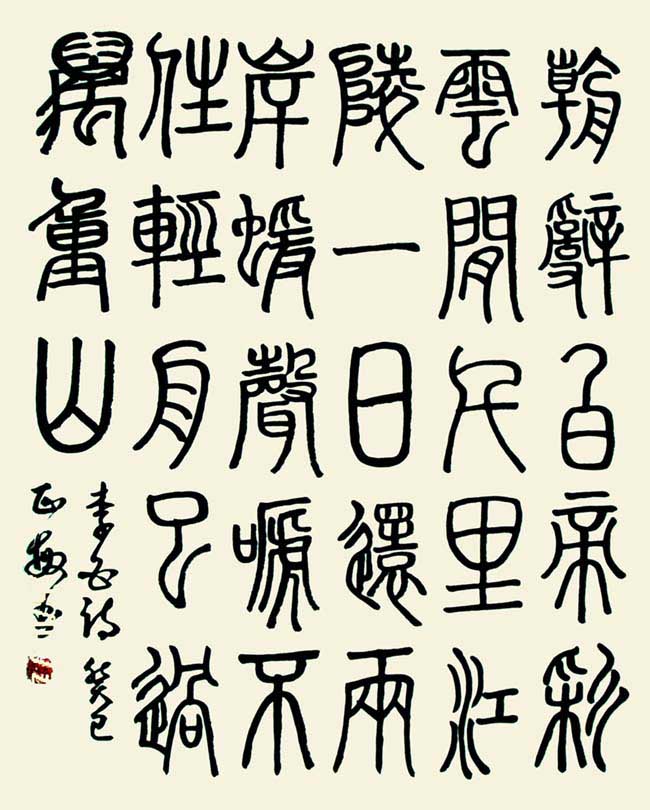 朝辭白帝彩
雲閒千里江
陵一日還兩
岸蝯聲嗁不
住輕舟已過
萬重山
李白詩 癸巳